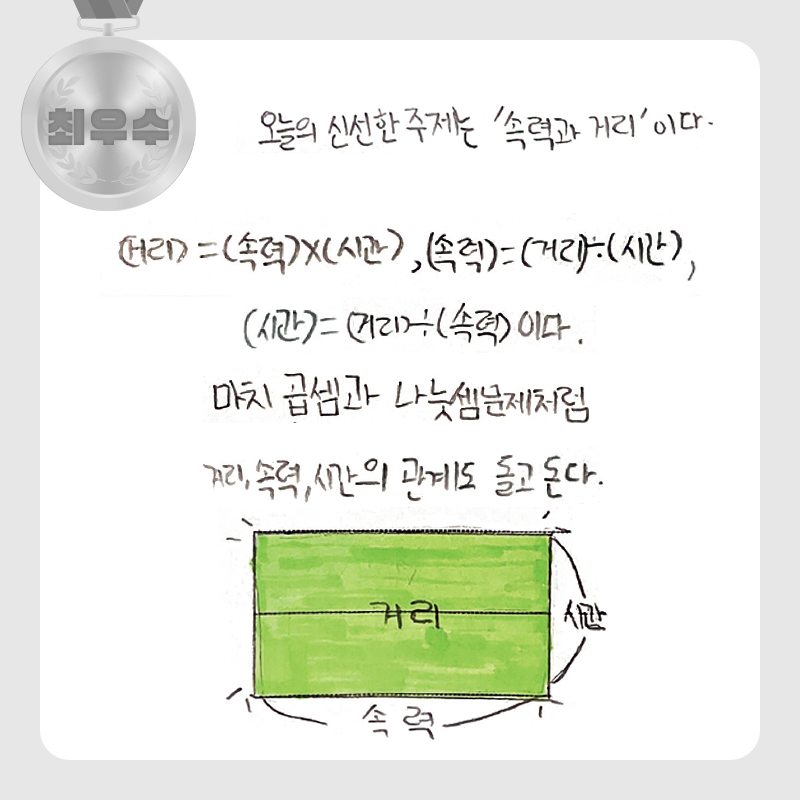 최우수
오늘의 신선한 주제는 '속력과 거리'이다.
(거리)=(속력)×(시간), (속력)=(거리)÷(시간),
(시간)=(거리)÷(속력)이다.
마치 곱셈과 나눗셈문제처럼
거리,속력,시간의 관계도 돌고돈다.
거리
시간
속력